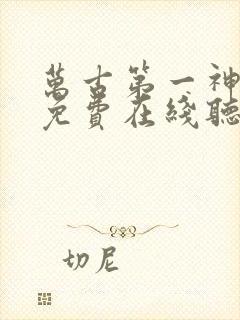 萬古第一神
免費在綫聽
切尼